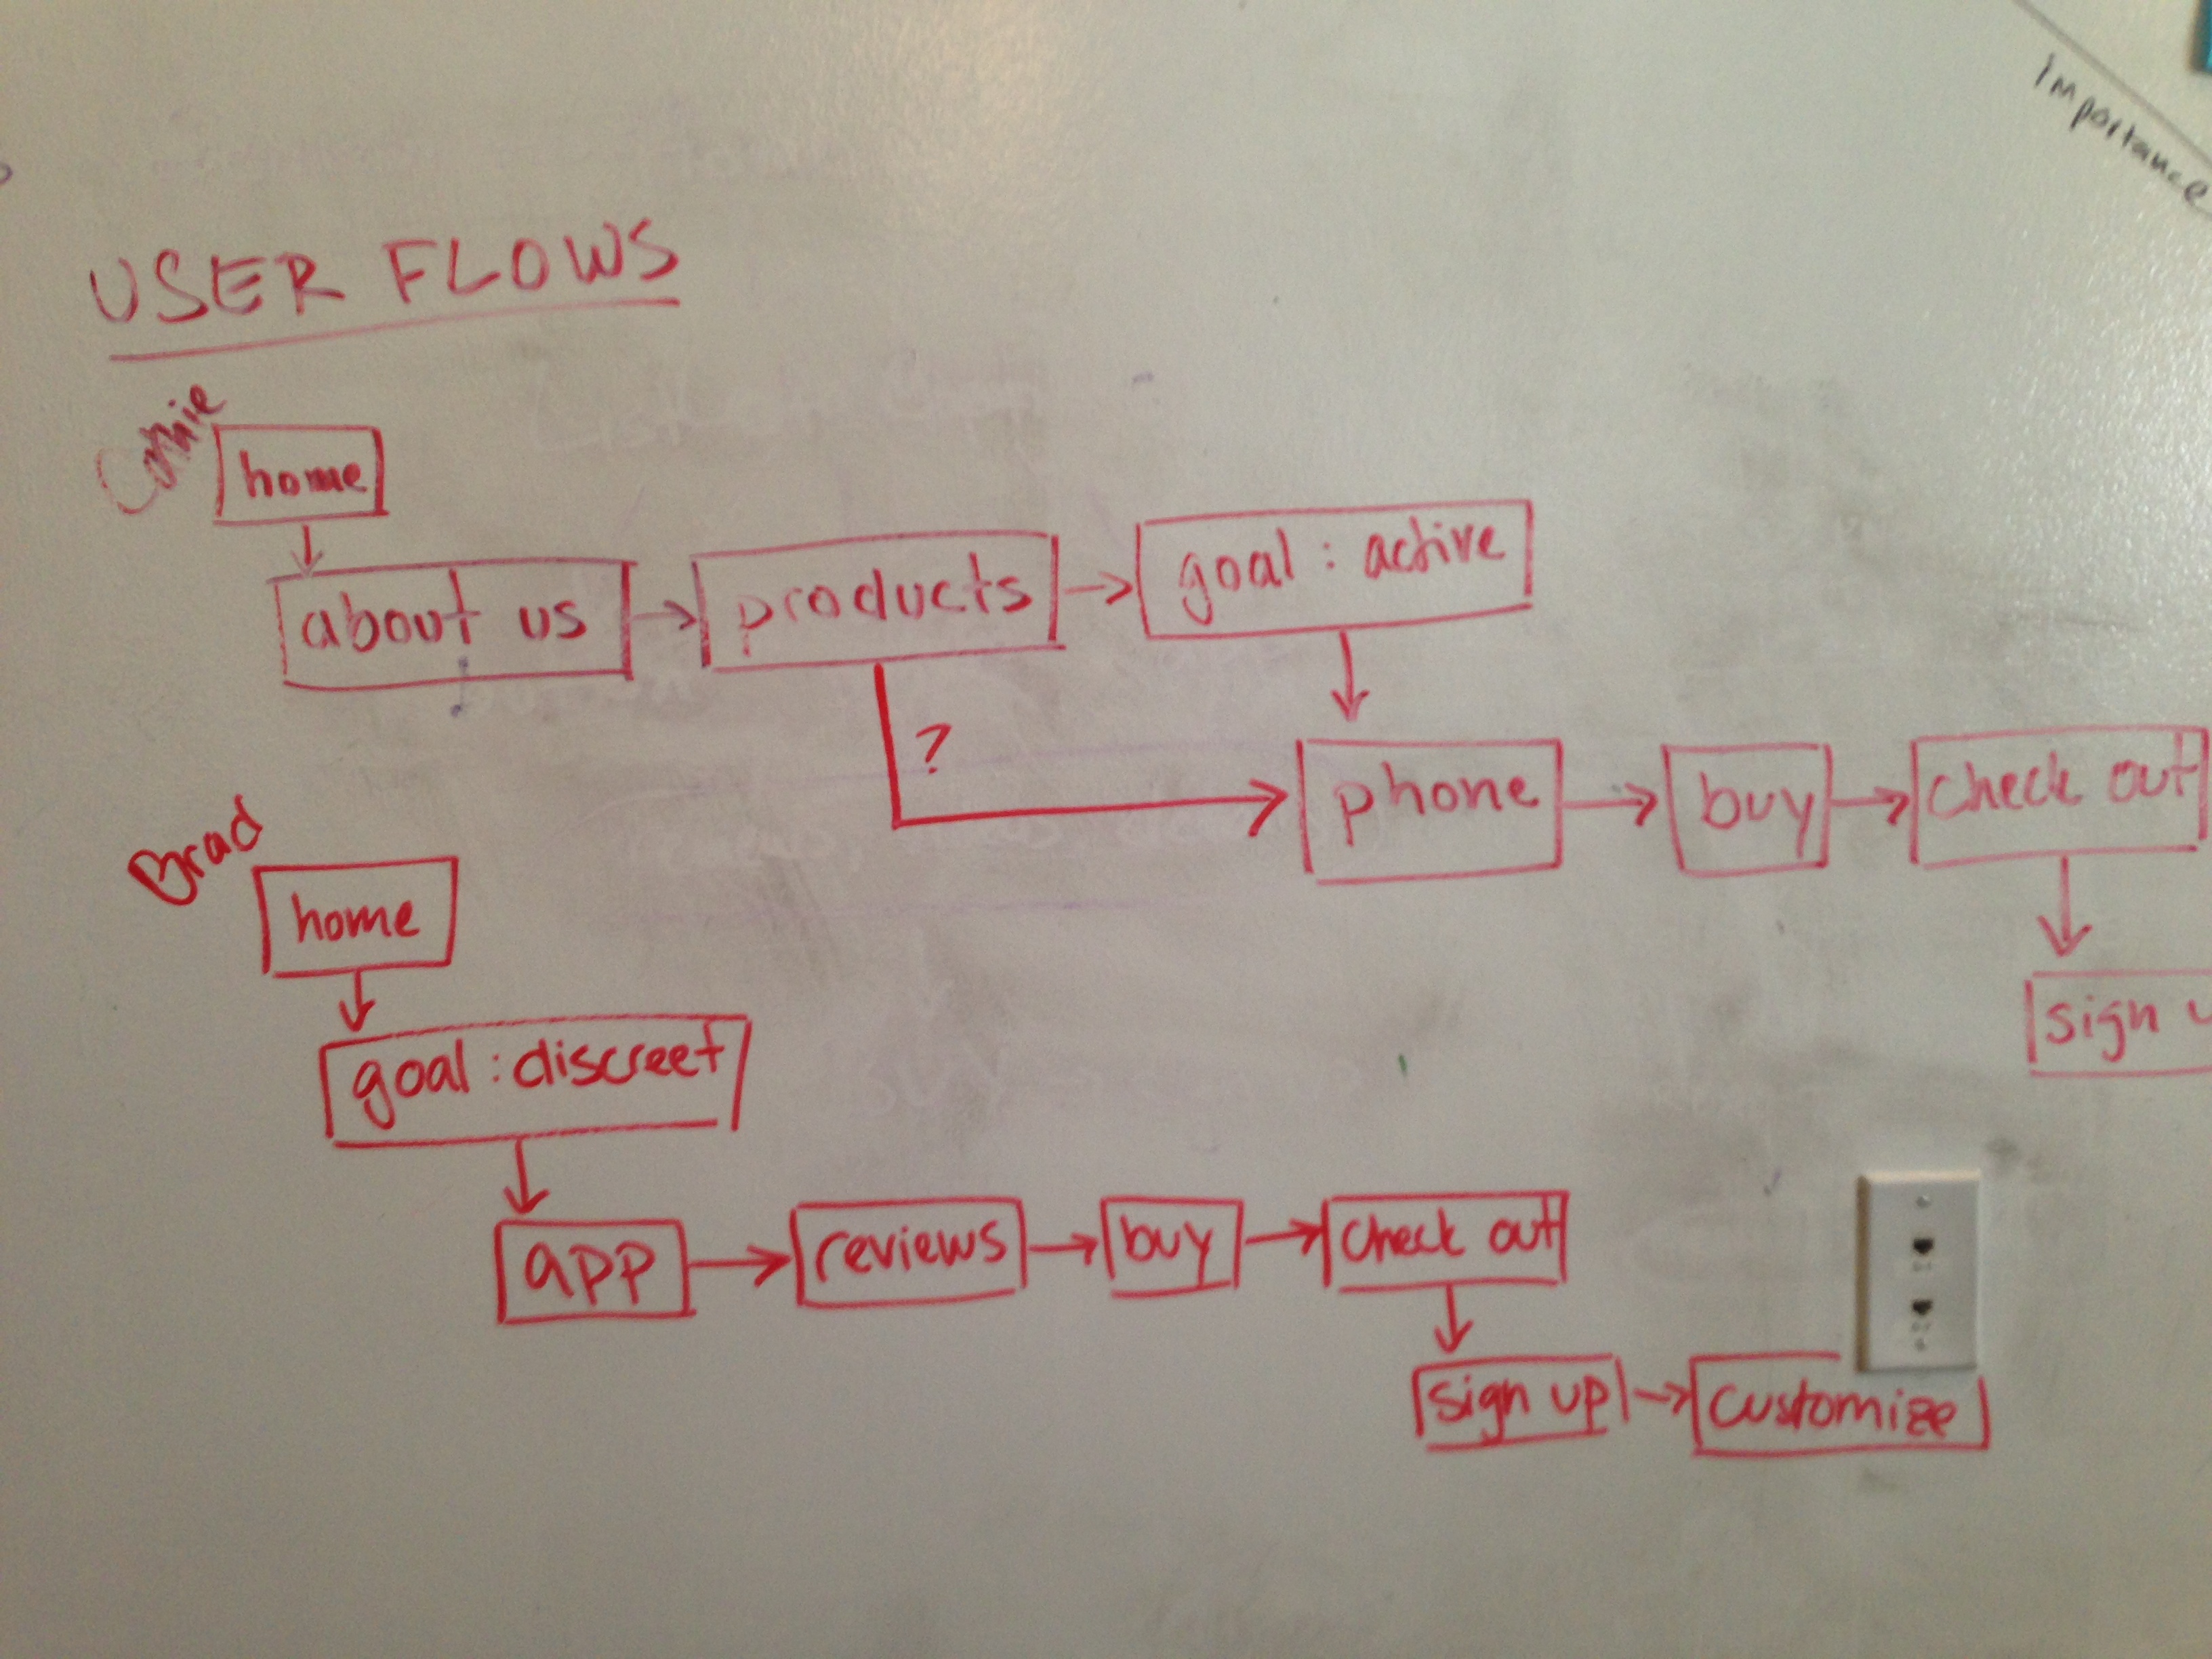 importance
USER FLOWS
home
about us
products
goal : active
?
phone
buy
check out
sign
Brad
home
goal : discreet
app
reviews
buy
check out
sign up
customize